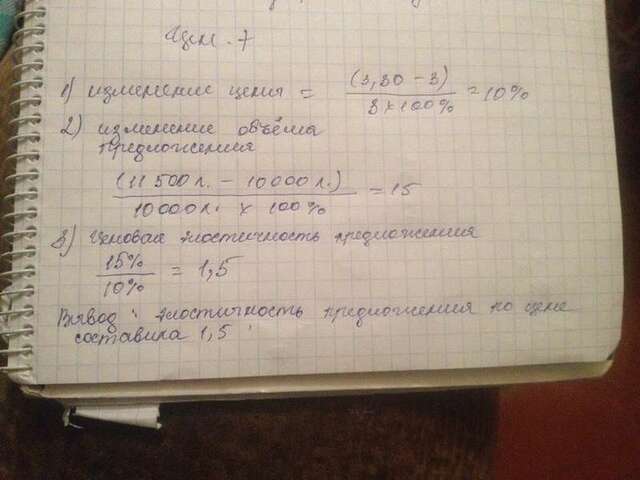 1) изменение цены = (3,30 - 3) / 3 × 100% = 10%
2) изменение объёма
предложения
(11 500 л. - 10000 л.) / 10000 л. × 100% = 15
3) Ценовая эластичность предложения
15% / 10% = 1,5
Вывод: эластичность предложения по цене
составила 1,5